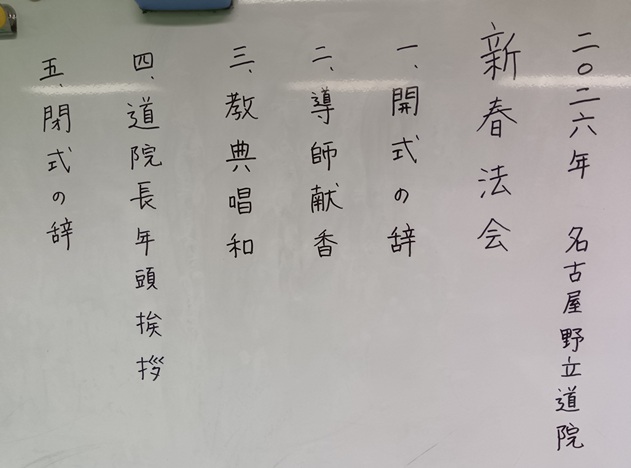 二〇二六年 名古屋野立道院
新春法会
一、開式の辞
二、導師献香
三、教典唱和
四、道院長年頭挨拶
五、閉式の辞